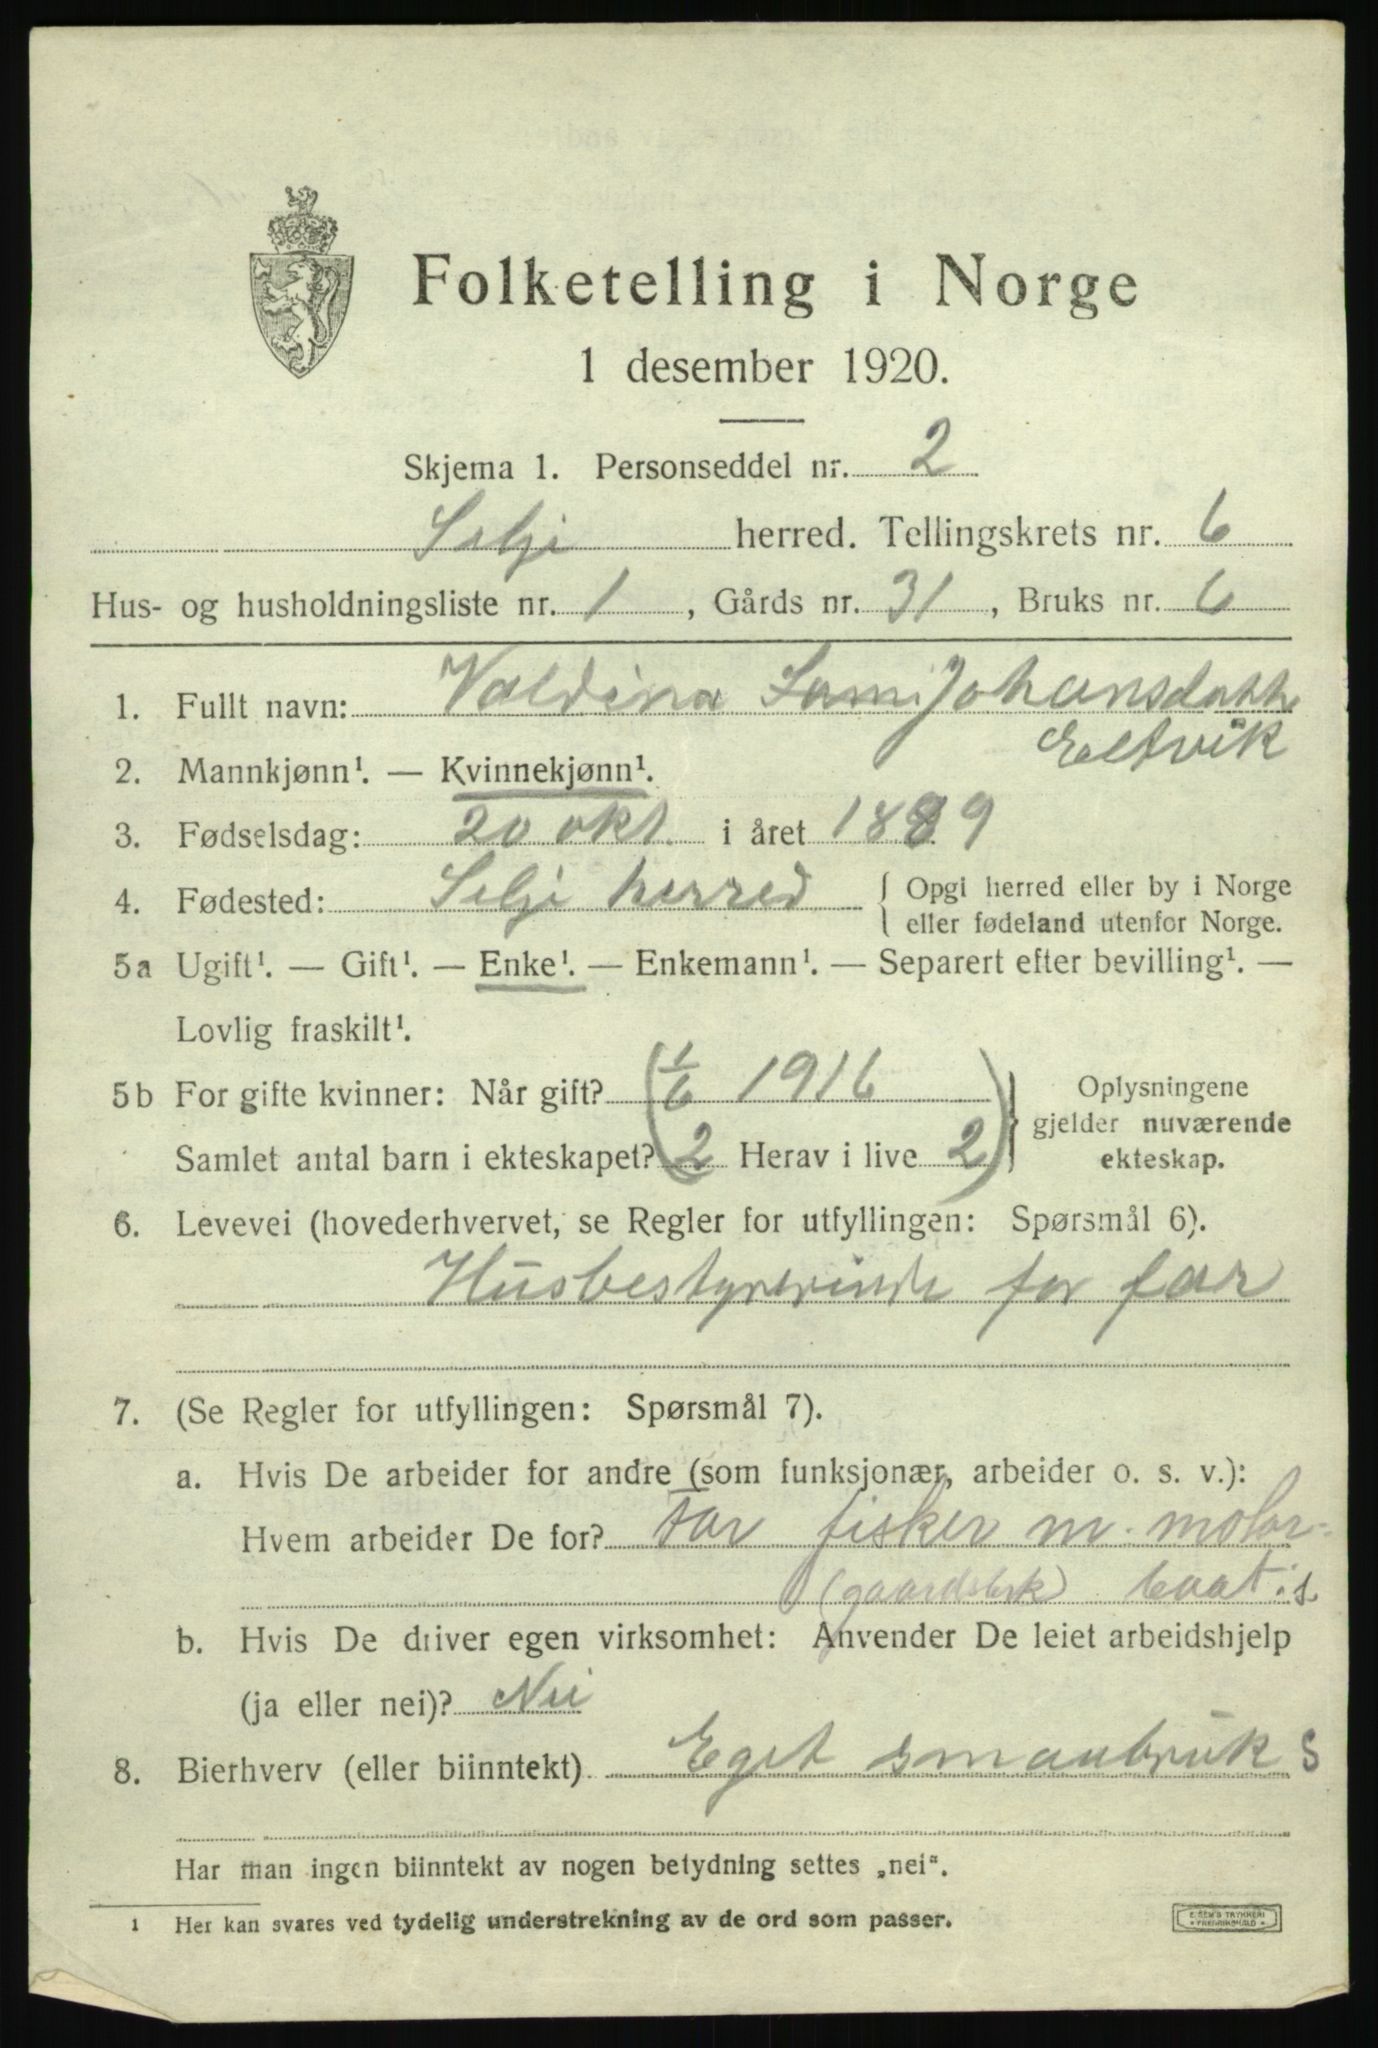 Folketelling i Norge
1 desember 1920.
Skjema 1. Personseddel nr. 2
Selje herred. Tellingskrets nr. 6
Hus- og husholdningsliste nr. 1, Gårds nr. 31, Bruks nr. 6
1. Fullt navn: Valdina Johansdatt
Eltvik
2. Mannkjønn¹. — Kvinnekjønn¹.
3. Fødselsdag: 20 okt. i året 1889
4. Fødested: Selje herred { Opgi herred eller by i Norge
eller fødeland utenfor Norge.
5a Ugift¹. — Gift¹. — Enke¹. — Enkemann¹. — Separert efter bevilling¹. —
Lovlig fraskilt¹.
5b For gifte kvinner: Når gift? (1/6 1916 Oplysningene
gjelder nuværende
Samlet antal barn i ekteskapet? 2 Herav i live 2) ekteskap.
6. Levevei (hovederhvervet, se Regler for utfyllingen: Spørsmål 6).
Husbestyrerinde for far
7. (Se Regler for utfyllingen: Spørsmål 7).
a. Hvis De arbeider for andre (som funksjonær, arbeider o. s. v.):
Hvem arbeider De for? Far fisker m. motor-
(gaardbrk) baat
b. Hvis De driver egen virksomhet: Anvender De leiet arbeidshjelp
(ja eller nei)? Nei
8. Bierhverv (eller biinntekt) Eget smaabruk S
Har man ingen biinntekt av nogen betydning settes „nei".
1 Her kan svares ved tydelig understrekning av de ord som passer.
E. SEM'S TRYKKERI
FREDRIKSHALD